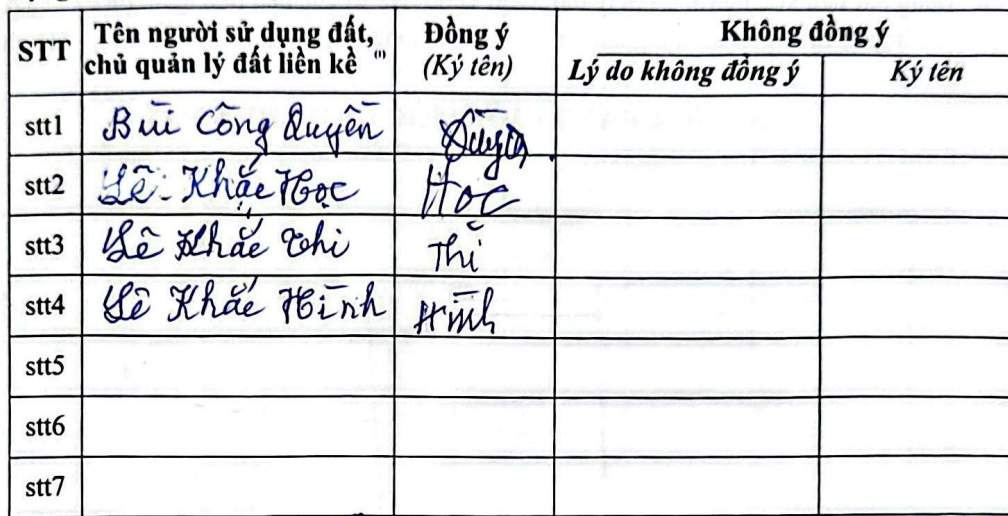 STT Tên người sử dụng đất, chủ quản lý đất liền kề (1) Đồng ý (Ký tên) Không đồng ý
Lý do không đồng ý Ký tên
stt1 Bùi Công Quyền Quyền
stt2 Lê Khắc Học Học
stt3 Lê Khắc Thi Thi
stt4 Lê Khắc Hình Hình
stt5
stt6
stt7